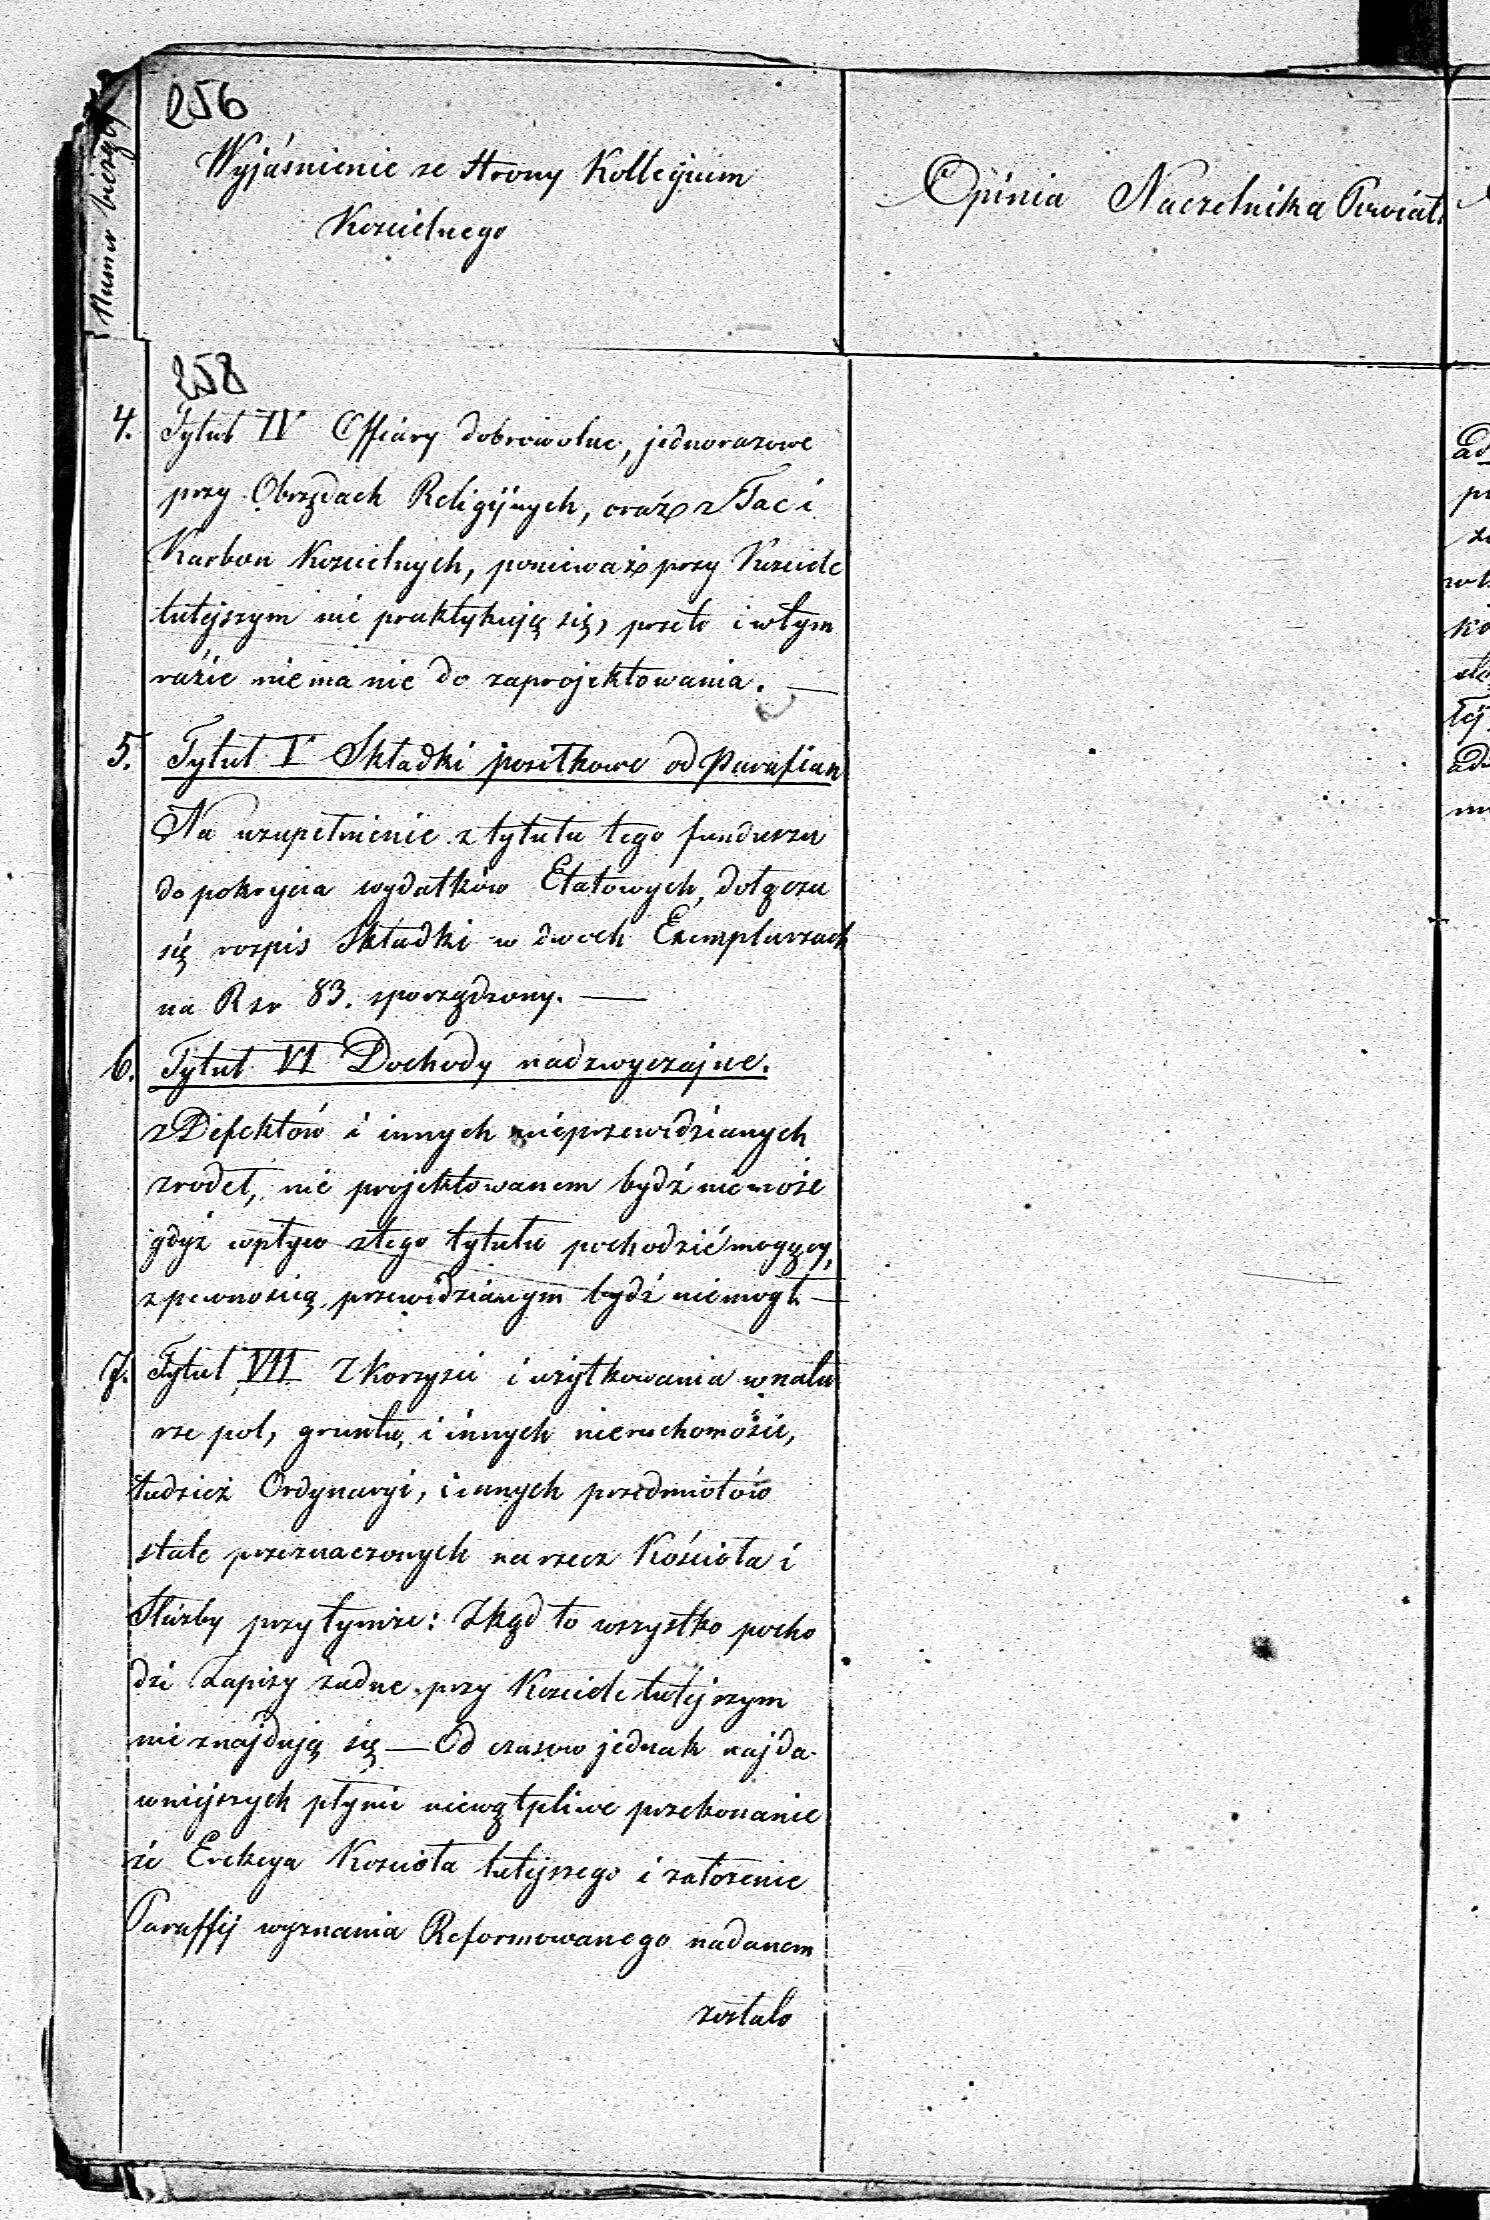 256
Numer bieżący
Wyjaśnienie ze strony Kollegium
Kościelnego
Opinia Naczelnika Powiat
258
4. Tytuł IV Offiary dobrowolne, jednorazowe
przy Obrzędach Religijnych, oraz z Tac i
Karbon Kościelnych, ponieważ przy Kosciele
tutejszym nie praktykują się, przeto i w tym
razie niema nic do zaprojektowania. —
5. Tytuł V Składki posiłkowe od Parafian
Na uzupełnienie z tytułu tego funduszu
do pokrycia wydatków Etatowych, dołącza
się rozpis Składki w dwoch Exemplarzach
na Rsr 83. sporządzony. —
6. Tytuł VI Dochody nadzwyczajne.
z Defektów i innych nieprzewidzianych
zrodeł, nic projektowanem bydź niemoże
gdyż wpływ z tego tytułu pochodzić mogący,
z pewnością przewidzianym bydź niemogł. —
7. Tytuł VII Z korzyści i użytkowania w natu
rze pol, gruntu, i innych nieruchomości,
tudzież Ordynaryi, i innych przedmiotów
stale przeznaczonych na rzecz Kościoła i
Służby przy tymże: Zkąd to wszystko pocho
dzi Zapisy żadne przy Kosciele tutejszym
nie znajdują się — Od czasow jednak najda-
wniejszych płynie niewątpliwe przekonanie
że Erekcya Kościoła tutejszego i założenie
Paraffij wyznania Reformowanego nadanem
zostało